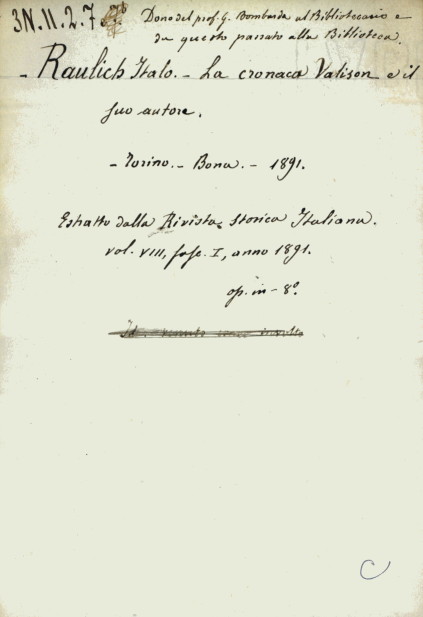 3N.11.2.7
Dono del prof. G. Bombarda al Bibliotecario e
da questo passato alla Biblioteca.
- Raulich Italo. - La cronaca Valison e il
suo autore.
- Torino. - Bona. - 1891.
Estratto dalla Rivista Storica Italiana.
vol. VIII, fasc. I, anno 1891.
op. in - 8º
C